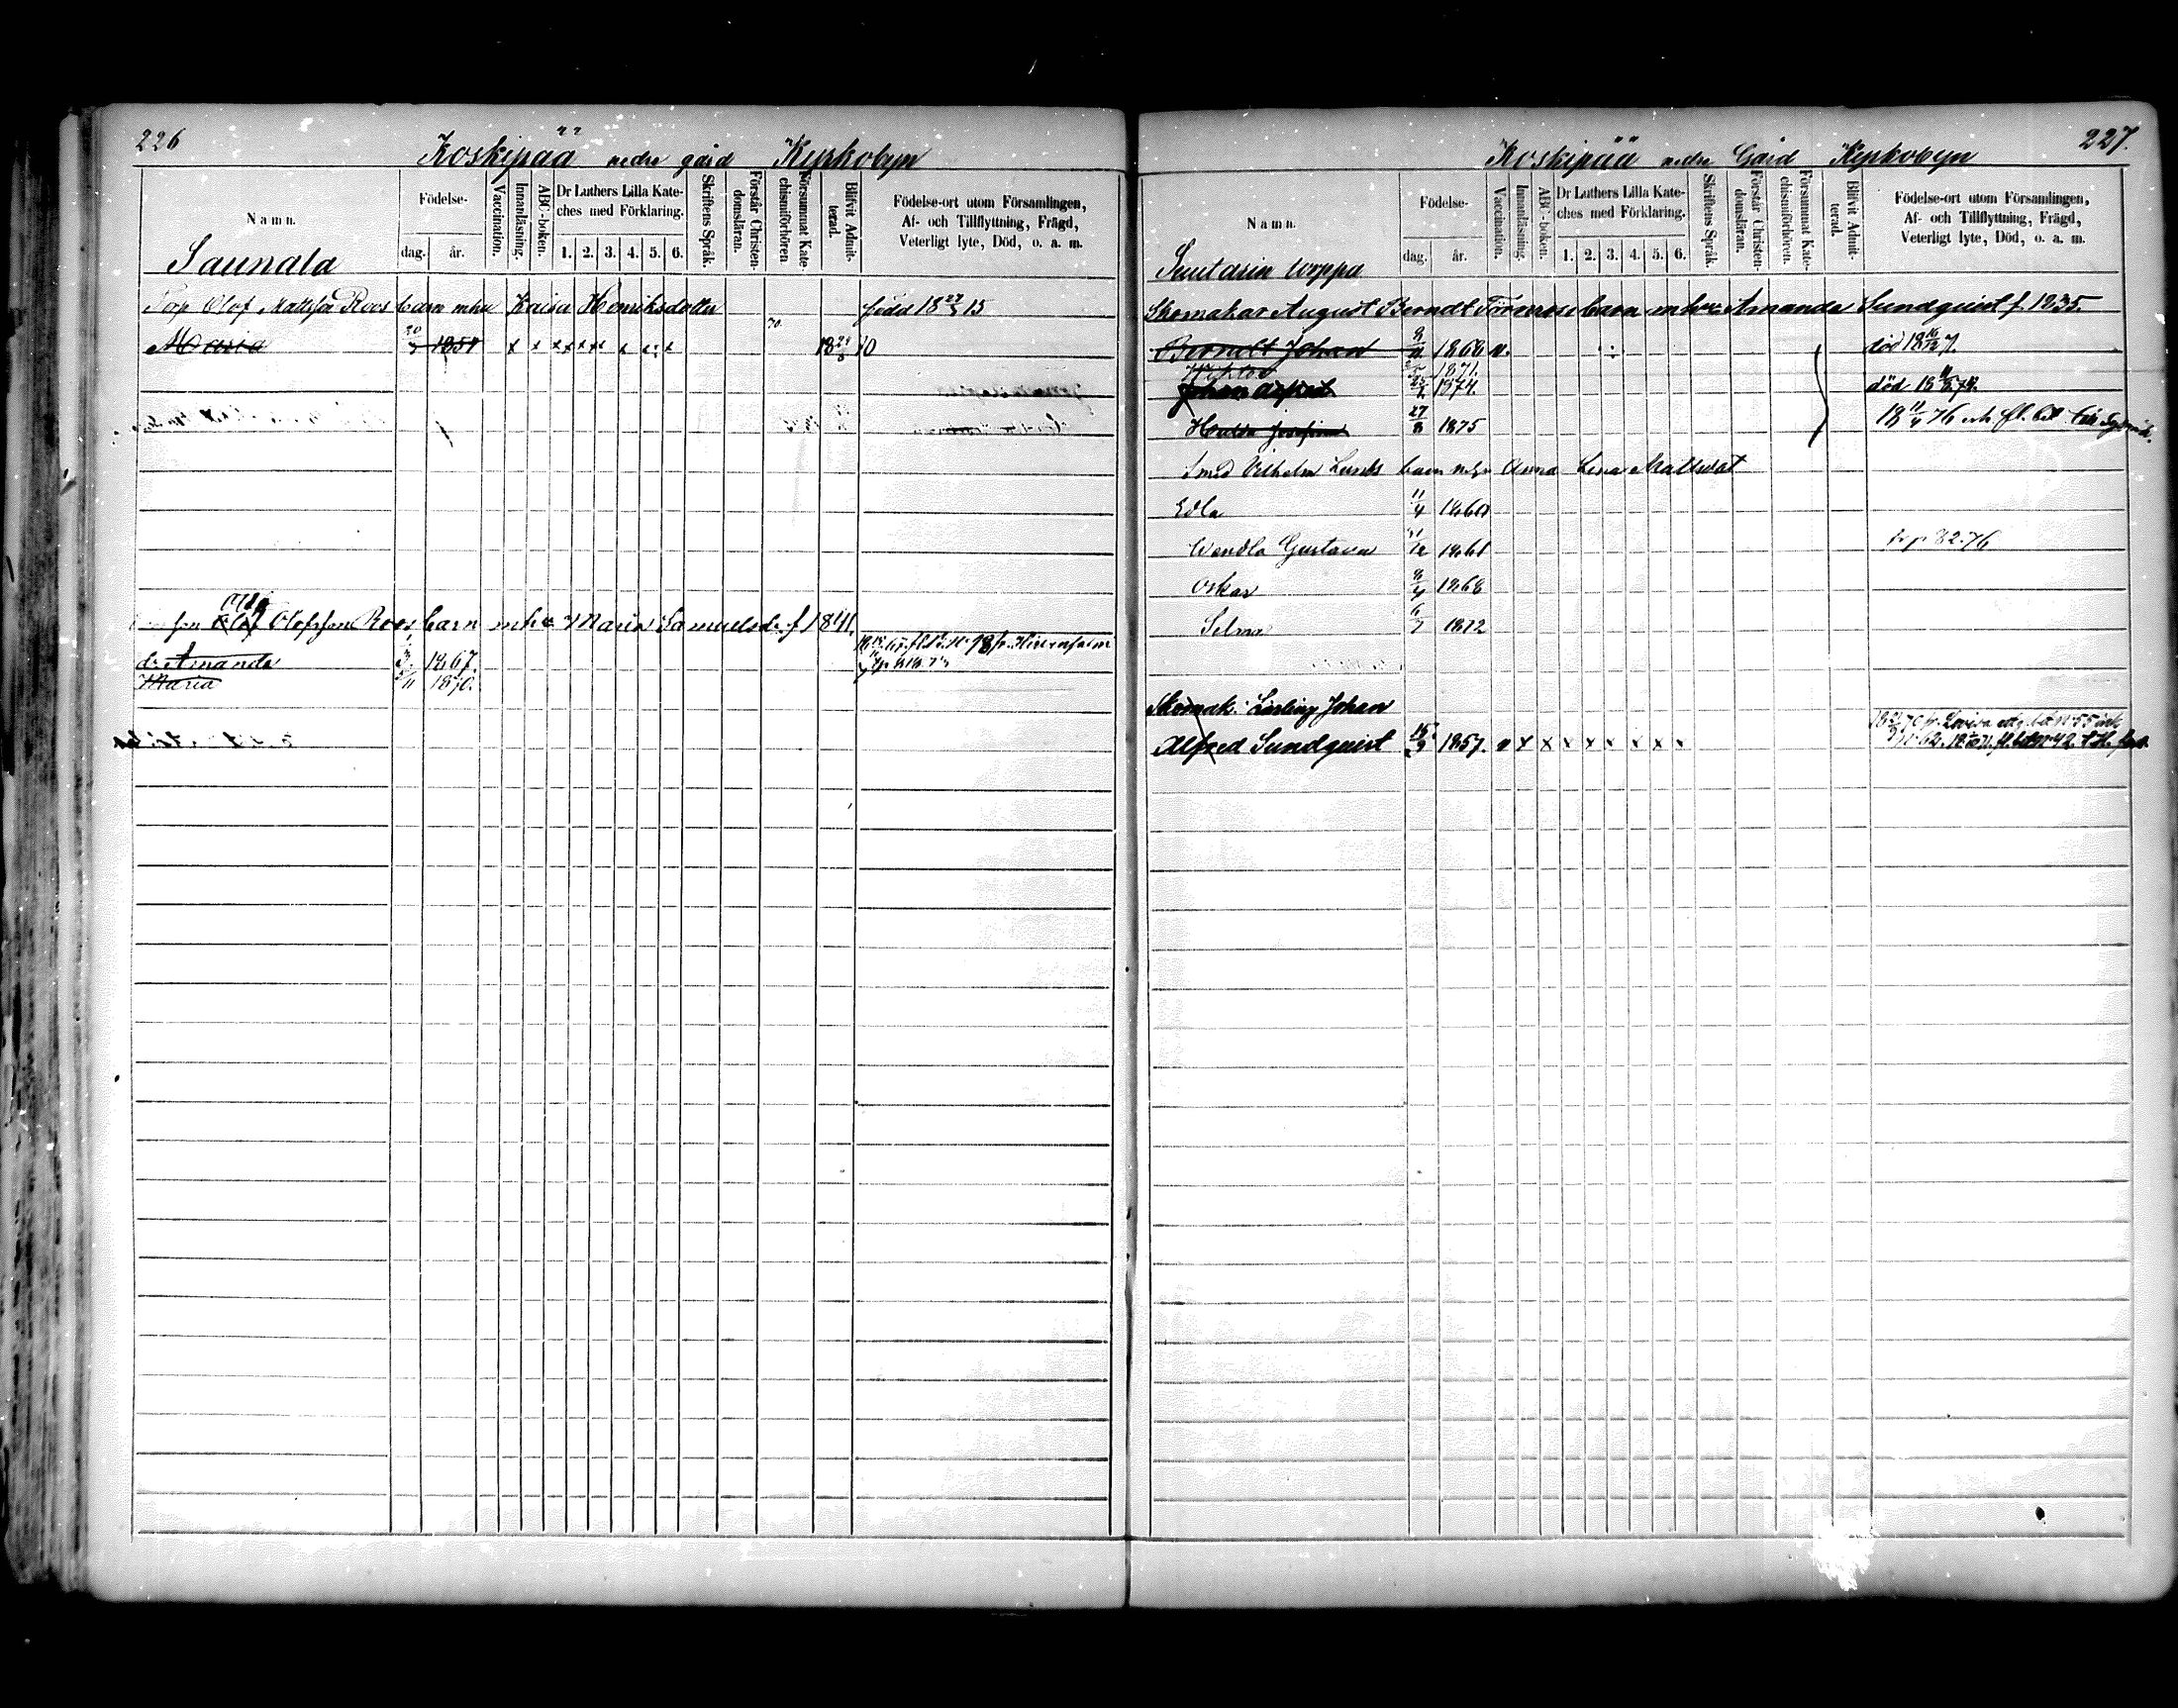 226
Koskipää nedre gård Kyrkobyn
Namn.
Födelse-
dag. år.
Vaccination.
Innanläsning.
ABC-boken.
Dr Luthers Lilla Kate-
ches med Förklaring.
1. 2. 3. 4. 5. 6.
Skriftens Språk.
Förstår Christen-
domsläran.
Försummat Kate-
chismiförhören.
Blifvit Admit-
terad.
Födelse-ort utom Församlingen,
Af- och Tillflyttning, Frägd,
Veterligt lyte, Död, o. a. m.
Saunala
Torp Olof Mattsson Roos barn m hu Kaisa Henriksdotter född 18 27/5 15
Maria 1854 x x x x x x x x x 70
Olofsson Roos barn m hu Maria Samuelsd. f 1841.
Amanda 1867.
Maria 1870.
227.
Koskipää nedre Gård Kyrkobyn
Namn.
Födelse-
dag. år.
Vaccination.
Innanläsning
ABC-boken.
Dr Luthers Lilla Kate-
ches med Förklaring.
1. 2. 3. 4. 5. 6.
Skriftens Språk.
Förstår Christen-
domsläran.
Försummat Kate-
chismiförhören.
Blifvit Admit-
terad.
Födelse-ort utom Församlingen,
Af- och Tillflyttning, Frägd,
Veterligt lyte, Död, o. a. m.
Suutarin torppa
Skomakar August Berndt Törnroos barn m hu Amanda Sundquist f. 1835.
Berndt Johan 1868 v.
Viktor 1871.
Johan Alfred 1874. död
Hulda Josefina 27/8 1875
Smed Vilhelm Lunds barn m hu Anna Lena Mattsdot
Edla 11/4 1860
Wendla Gustava 1861
Oskar 8/4 1868
Selma 6/7 1872
Skomak. Lärling Johan
Alfred Sundquist 1857. v x x x x x x x x